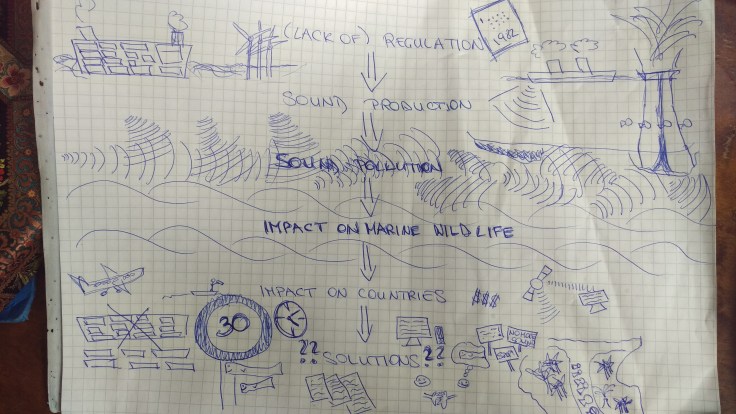 (LACK OF) REGULATION
1982
SOUND PRODUCTION
SOUND POLLUTION
IMPACT ON MARINE WILDLIFE
IMPACT ON COUNTRIES
$$$
30
?? SOLUTIONS ??
NO MORE